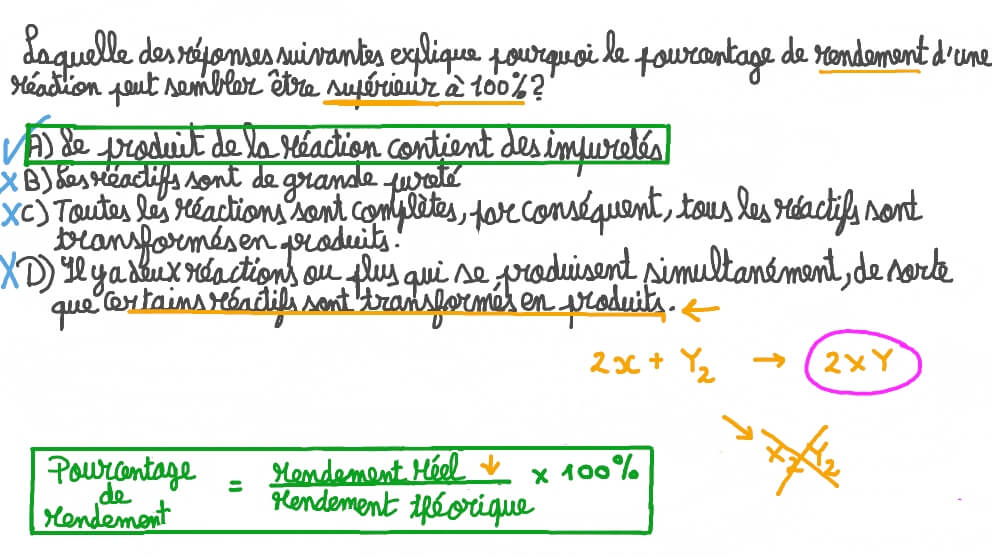 Laquelle des réponses suivantes explique pourquoi le pourcentage de rendement d'une
réaction peut sembler être supérieur à 100%?
A) Le produit de la réaction contient des impuretés
B) Les réactifs sont de grande pureté
C) Toutes les réactions sont complètes, par conséquent, tous les réactifs sont
transformés en produits.
D) Il y a deux réactions ou plus qui se produisent simultanément, de sorte
que certains réactifs sont transformés en produits.
2x + Y₂ → 2xY
x₂Y₂
Pourcentage de rendement = rendement réel ↓ / rendement théorique × 100%